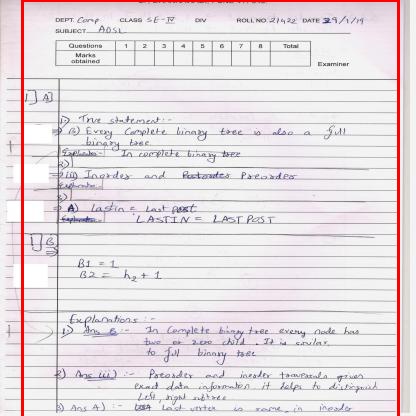 DEPT. Comp CLASS SE-IV DIV ROLL NO. 21422 DATE 29/1/19
SUBJECT ADSL
Questions 1 2 3 4 5 6 7 8 Total
Marks obtained
Examiner
1] A]
1) True statement :-
(B) Every Complete binary tree is also a full
binary tree.
In complete binary tree
2)
(iii) Inorder and Preorder
3)
A) Lastin = Last post
LASTIN = LAST POST
1] B]
B1 = 1
B2 = h2 + 1
Explanations :-
1) Ans B :- In Complete binary tree every node has
two or zero child. It is similar
to full binary tree
2) Ans (iii) :- Preorder and inorder traversals given
exact data information. it helps to distinguish
Left, right subtree
3) Ans A) :- Last vertex is same in inorder